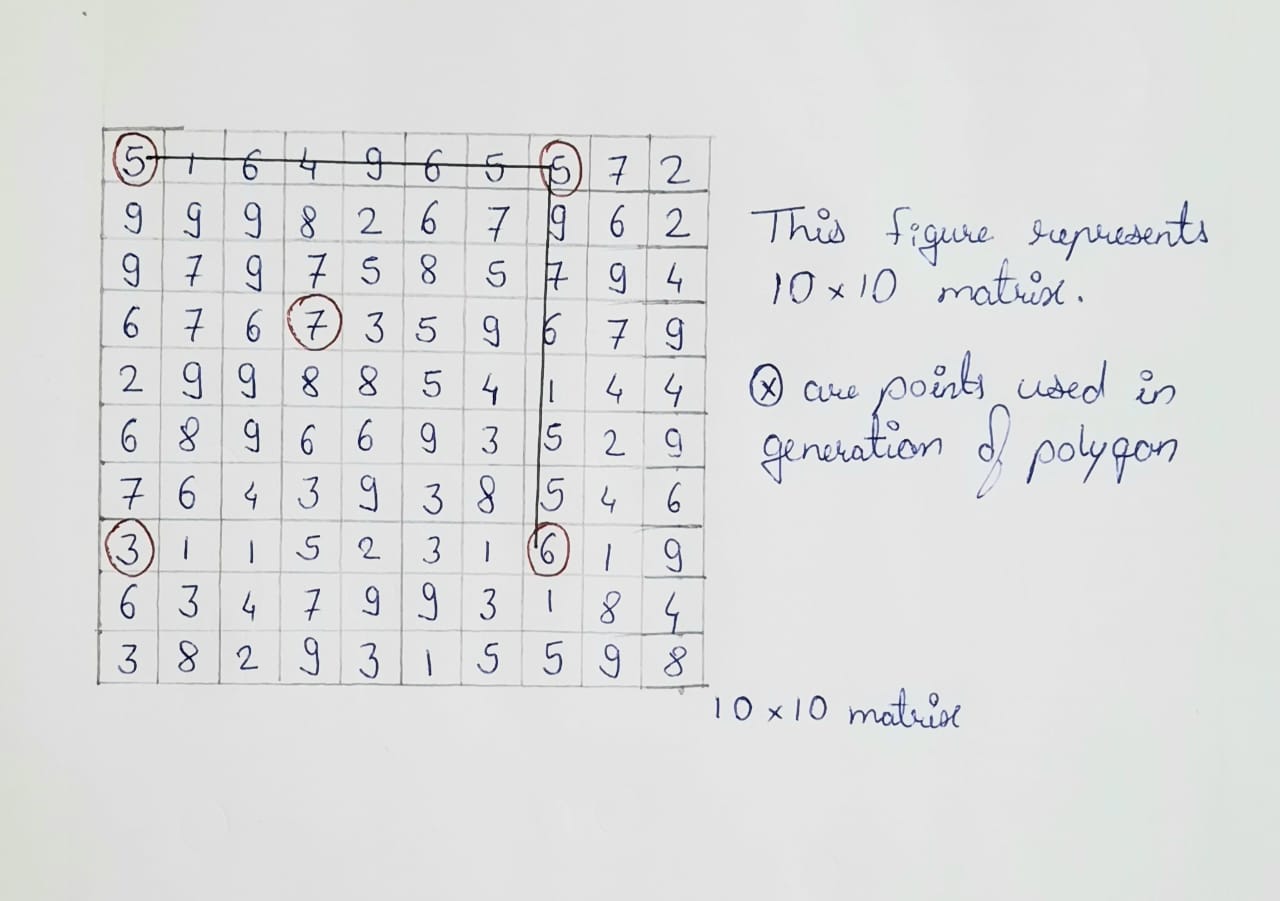 5 1 6 4 9 6 5 5 7 2
9 9 9 8 2 6 7 9 6 2
9 7 9 7 5 8 5 7 9 4
6 7 6 7 3 5 9 6 7 9
2 9 9 8 8 5 4 1 4 4
6 8 9 6 6 9 3 5 2 9
7 6 4 3 9 3 8 5 4 6
3 1 1 5 2 3 1 6 1 9
6 3 4 7 9 9 3 1 8 4
3 8 2 9 3 1 5 5 9 8
10 × 10 matrix
This figure represents
10 × 10 matrix.
ⓧ are points used in
generation of polygon